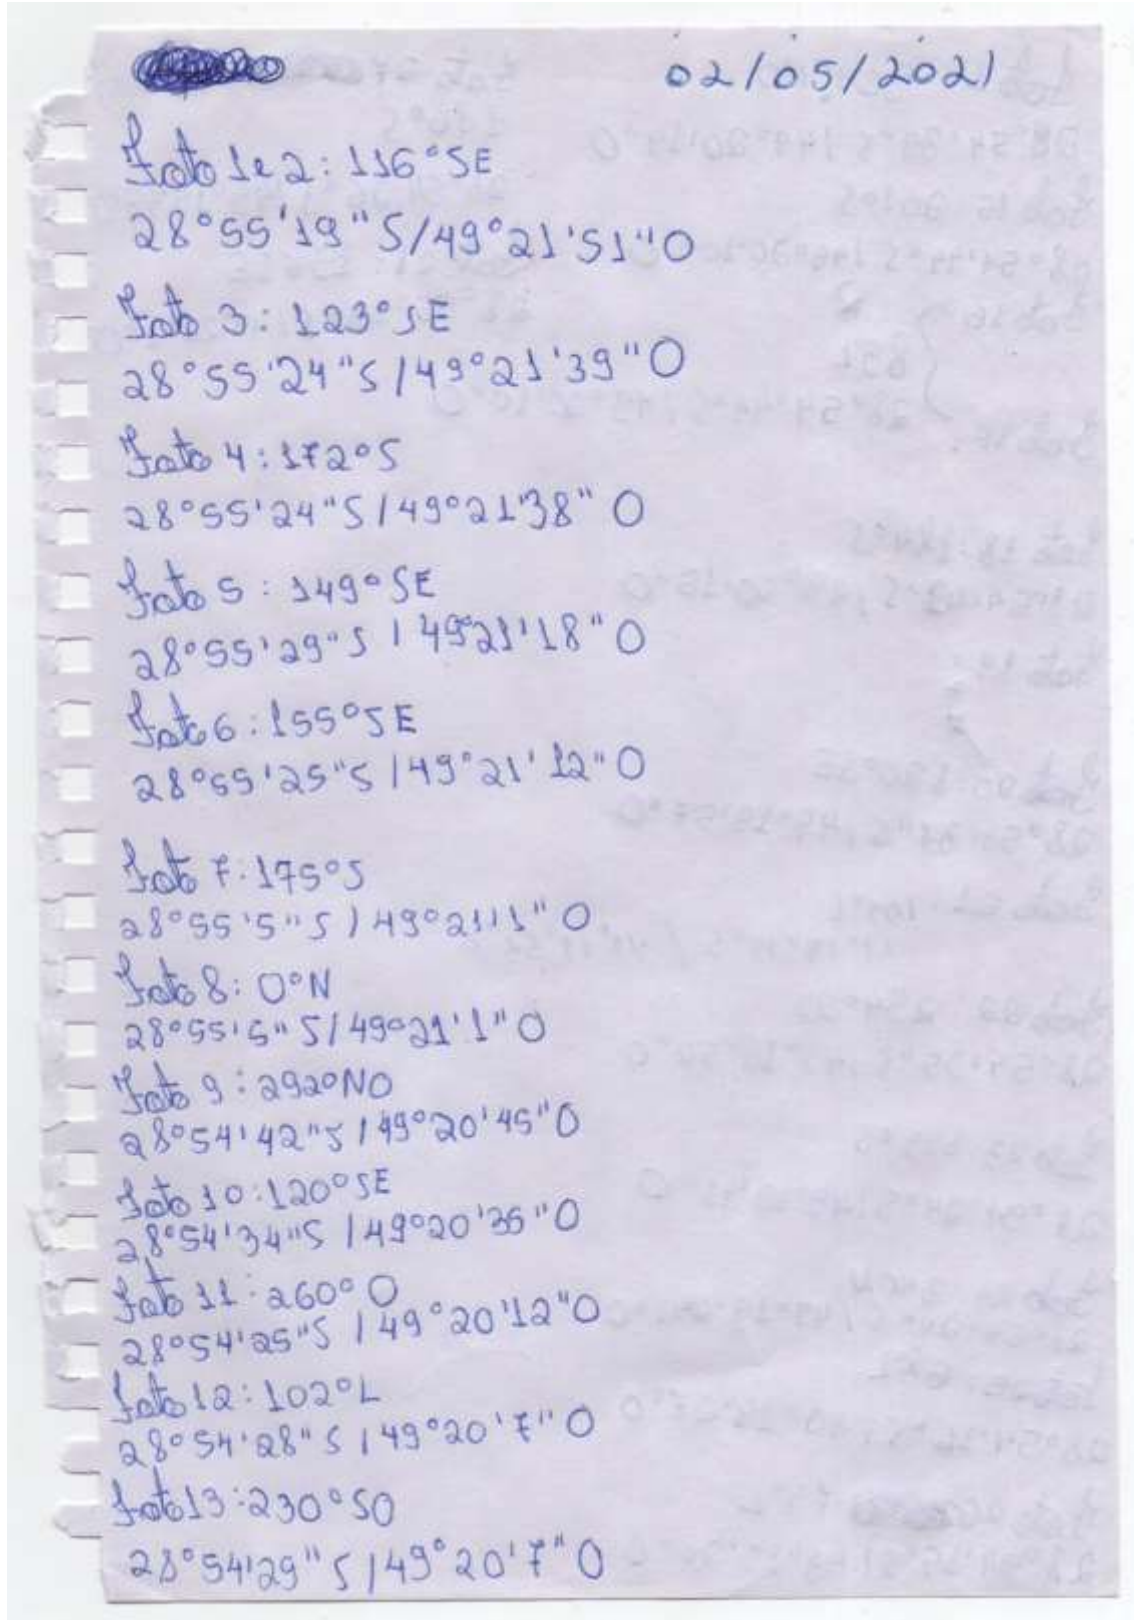 02/05/2021
Foto 1 e 2: 116°SE
28°55'19"S/49°21'51"O
Foto 3: 123°SE
28°55'24"S/49°21'39"O
Foto 4: 172°S
28°55'24"S/49°21'38"O
Foto 5: 149°SE
28°55'29"S/49°21'18"O
Foto 6: 155°SE
28°55'25"S/49°21'12"O
Foto 7: 175°S
28°55'5"S/49°21'1"O
Foto 8: 0°N
28°55'5"S/49°21'1"O
Foto 9: 292°NO
28°54'42"S/49°20'45"O
Foto 10: 120°SE
28°54'34"S/49°20'35"O
Foto 11: 260°O
28°54'25"S/49°20'12"O
Foto 12: 102°L
28°54'28"S/49°20'7"O
Foto 13: 230°SO
28°54'29"S/49°20'7"O